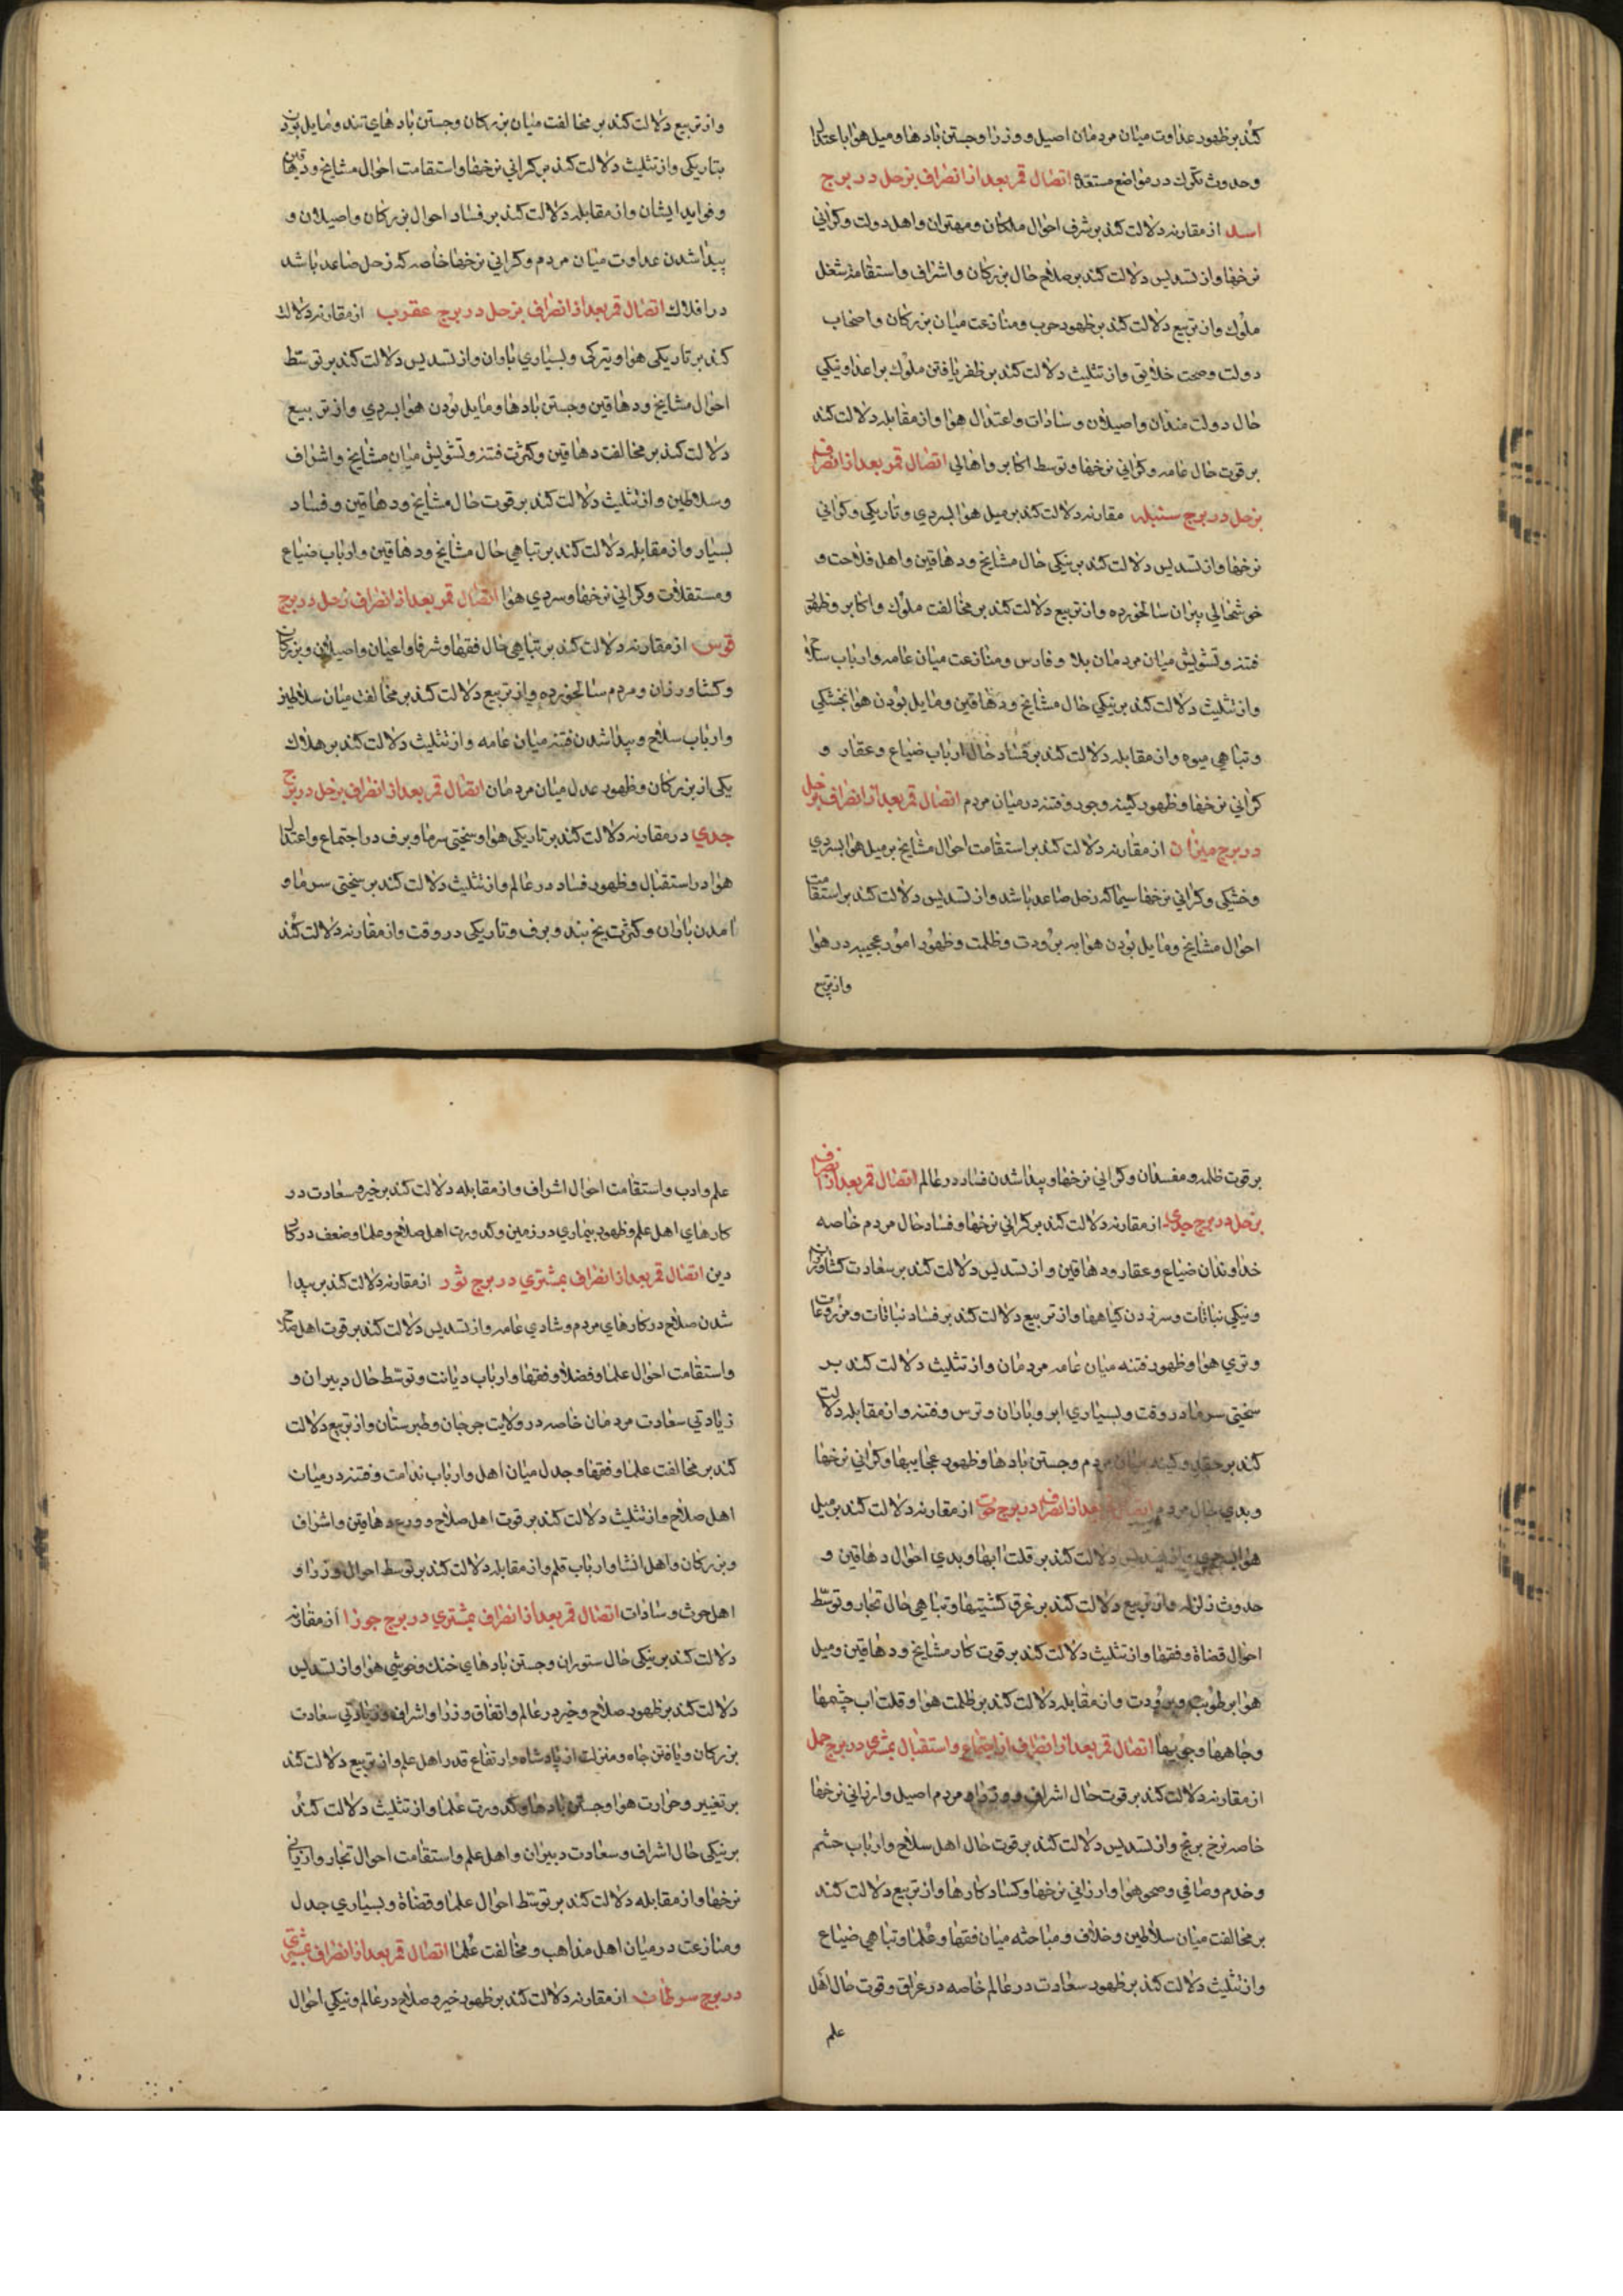 کند بر ظهور عداوت میان مردمان اصیل و وزرا و جستن بادها و میل هوا باعتدال
و حدوث تگرک در مواضع مستعده اتصال قمر بعد از انصراف بزحل در برج
اسد از مقارنه دلالت کند بر شرف احوال ملکان و مهتران و اهل دولت و کرانی
نرخها و از تسدیس دلالت کند بر صلاح حال بزرکان و اشراف و استقامة شغل
ملوک و از تربیع دلالت کند بر ظهور حرب و منازعت میان بزرکان و اصحاب
دولت و صحت خلایق و از تثلیث دلالت کند بر ظفر یافتن ملوک بر اعدا و نیکی
حال دولت مندان و اصیلان و سادات و اعتدال هوا و از مقابله دلالت کند
بر قوت حال عامه و کرانی نرخها و توسط اکابر و اهالی اتصال قمر بعد از انصراف
بزحل در برج سنبله مقارنه دلالت کند بر میل هوا بسردی و تاریکی و کرانی
نرخها و از تسدیس دلالت کند بر نیکی حال مشایخ و دهاقین و اهل فلاحت و
خوشحالی پیران سالخورده و از تربیع دلالت کند بر مخالفت ملوک و اکابر و ظهور
فتنه و تشویش میان مردمان بلاد فارس و منازعت میان عامه و ارباب سلاح
و از تثلیث دلالت کند بر نیکی حال مشایخ و دهاقین و مایل بودن هوا بخشکی
و تباهی میوه و از مقابله دلالت کند بر فساد حال ارباب ضیاع و عقار و
کرانی نرخها و ظهور کینه و جور و فتنه در میان مردم اتصال قمر بعد از انصراف بزحل
در برج میزان از مقارنه دلالت کند بر استقامت احوال مشایخ بر میل هوا بسردی
و خشکی و کرانی نرخها سیما که زحل صاعد باشد و از تسدیس دلالت کند بر استقامت
احوال مشایخ و مایل بودن هوا به برودت و ظلمت و ظهور امور عجیبه در هوا
و از تربیع
و از تربیع دلالت کند بر مخالفت میان بزرکان و جستن بادهای تند و مایل بودن
بتاریکی و از تثلیث دلالت کند بر کرانی نرخها و استقامت احوال مشایخ و دهاقین
و فواید ایشان و از مقابله دلالت کند بر فساد احوال بزرکان و اصیلان و
پیدا شدن عداوت میان مردم و کرانی نرخها خاصه که زحل صاعد باشد
در افلاک اتصال قمر بعد از انصراف بزحل در برج عقرب از مقارنه دلالت
کند بر تاریکی هوا و تیرکی و بسیاری باران و از تسدیس دلالت کند بر توسّط
احوال مشایخ و دهاقین و جستن بادها و مایل بودن هوا بسردی و از تربیع
دلالت کند بر مخالفت دهاقین و کثرت فتنه و تشویش میان مشایخ و اشراف
و سلاطین و از تثلیث دلالت کند بر قوت حال مشایخ و دهاقین و فساد
بسیار و از مقابله دلالت کند بر تباهی حال مشایخ و دهاقین و ارباب ضیاع
و مستقلات و کرانی نرخها و سردی هوا اتصال قمر بعد از انصراف زحل در برج
قوس از مقارنه دلالت کند بر تباهی حال فقها و شرفا و اعیان و اصیلان و بزرکان
و کشاورزان و مردم سالخورده و از تربیع دلالت کند بر مخالفت میان سلاطین
و ارباب سلاح و پیدا شدن فتنه میان عامه و از تثلیث دلالت کند بر هلاک
یکی از بزرکان و ظهور عدل میان مردمان اتصال قمر بعد از انصراف بزحل در برج
جدی در مقارنه دلالت کند بر تاریکی هوا و سختی سرما و برف در اجتماع و اعتدال
هوا در استقبال و ظهور فساد در عالم و از تثلیث دلالت کند بر سختی سرما و
آمدن باران و کثرت یخ بند و برف و تاریکی در وقت و از مقارنه دلالت کند
بر قوت ظلمه و مفسدان و کرانی نرخها و پیدا شدن فساد در عالم اتصال قمر بعد از انصراف
بزحل در برج جدی از مقارنه دلالت کند بر کرانی نرخها و فساد حال مردم خاصه
خداوندان ضیاع و عقار و دهاقین و از تسدیس دلالت کند بر سعادت کشاورزان
و نیکی نباتات و سر زدن کیاهها و از تربیع دلالت کند بر فساد نباتات و مزروعات
و تری هوا و ظهور فتنه میان عامه مردمان و از تثلیث دلالت کند بر
سختی سرما در وقت و بسیاری ابر و باران و ترس و فتنه و از مقابله دلالت
کند بر حقد و کینه میان مردم و جستن بادها و ظهور عجایبها و کرانی نرخها
و بدی حال مردم اتصال قمر بعد از انصراف در برج حوت از مقارنه دلالت کند بر میل
هوا و از تسدیس دلالت کند بر قلت ابها و بدی احوال دهاقین و
حدوث زلزله و از تربیع دلالت کند بر غرق کشتیها و تباهی حال تجار و توسّط
احوال قضاة و فقها و از تثلیث دلالت کند بر قوت کار مشایخ و دهاقین و میل
هوا برطوبت و برودت و از مقابله دلالت کند بر ظلمت هوا و قلت اب چشمها
و چاهها و جویها اتصال قمر بعد از انصراف از اجتماع و استقبال بمشتری در برج حمل
از مقارنه دلالت کند بر قوت حال اشراف و وزراء مردم اصیل و ارزانی نرخها
خاصه نرخ برنج و از تسدیس دلالت کند بر قوت حال اهل سلاح و ارباب حشم
و خدم و صافی و صحو هوا و ارزانی نرخها و کساد کارها و از تربیع دلالت کند
بر مخالفت میان سلاطین و خلاف و مباحثه میان فقها و علما و تباهی ضیاع
و از تثلیث دلالت کند بر ظهور سعادت در عالم خاصه در عراق و قوت حال اهل
علم
علم و ادب و استقامت احوال اشراف و از مقابله دلالت کند بر خیر و سعادت در
کارهای اهل علم و ظهور بیماری در زمین و کدورت اهل صلاح و علما و ضعف در کار
دین اتصال قمر بعد از انصراف بمشتری در برج ثور از مقارنه دلالت کند بر پیدا
شدن صلاح در کارهای مردم و شادی عامه و از تسدیس دلالت کند بر قوت اهل صلاح
و استقامت احوال علما و فضلا و فقها و ارباب دیانت و توسّط حال دبیران و
زیادتی سعادت مردمان خاصه در ولایت جرجان و طبرستان و از تربیع دلالت
کند بر مخالفت علما و فقها و جدل میان اهل و ارباب ندامت و فتنه در میان
اهل صلاح و از تثلیث دلالت کند بر قوت اهل صلاح و ورع و دهاقین و اشراف
و بزرکان و اهل انشا و ارباب قلم و از مقابله دلالت کند بر توسط احوال وزرا و
اهل حرث و سادات اتصال قمر بعد از انصراف بمشتری در برج جوزا از مقارنه
دلالت کند بر نیکی حال ستوران و جستن بادهای خنک و خوشی هوا و از تسدیس
دلالت کند بر ظهور صلاح و خیر در عالم و اتفاق وزرا و اشراف و زیادتی سعادت
بزرکان و یافتن جاه و منزلت از پادشاه و ارتفاع قدر اهل علم و از تربیع دلالت کند
بر تغییر و حرارت هوا و جستن بادها و کدورت علما و از تثلیث دلالت کند
بر نیکی حال اشراف و سعادت دبیران و اهل علم و استقامت احوال تجار و ارزانی
نرخها و از مقابله دلالت کند بر توسّط احوال علما و قضاة و بسیاری جدل
و منازعت در میان اهل مذاهب و مخالفت علما اتصال قمر بعد از انصراف بمشتری
در برج سرطان از مقارنه دلالت کند بر ظهور خیر و صلاح در عالم و نیکی احوال